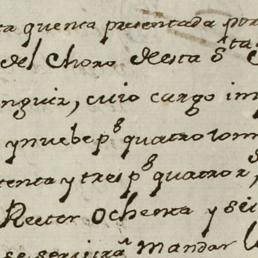 ta quenta presentada por
del Choro desta S.ta
nguir, cuio cargo im
y nuebe p.s quatro tom
tenta y tres p.s quatro r.s
Rector Ochenta y sei
se servira mandar